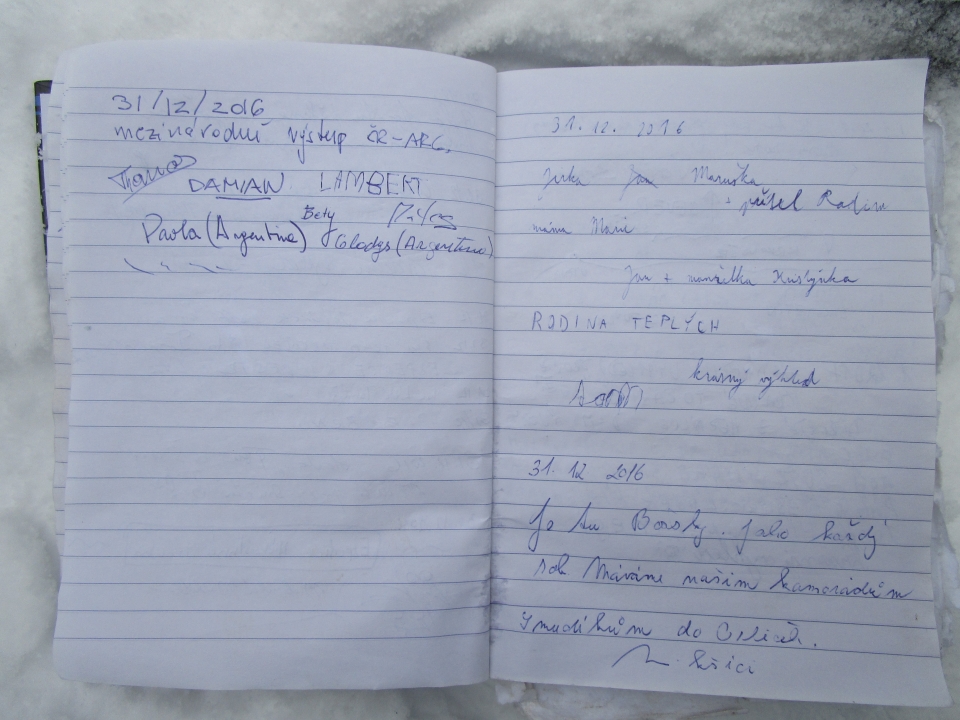 31/12/2016
mezinárodní výstup ČR-ARG.
DAMIAN LAMBERT
Bety
Paola (Argentina) y Gladys (Argentina)
31. 12. 2016
Jirka Jan Maruška
+ přišel Radim
máma Marie
Jan + manželka
RODINA TEPLÝCH
krásný výhled
31. 12 2016
Je tu Borsky. Jako každý
rok Máváme našim kamarádům
do